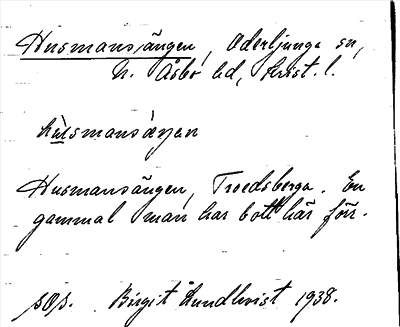 Husmansängen, Oderljunga sn,
N. Åsbo hd, Krist. l.
husmansæŋan
Husmansängen, Troedsberga. En
gammal man har bott här förr.
sOp. Birgit Lundkvist 1938.